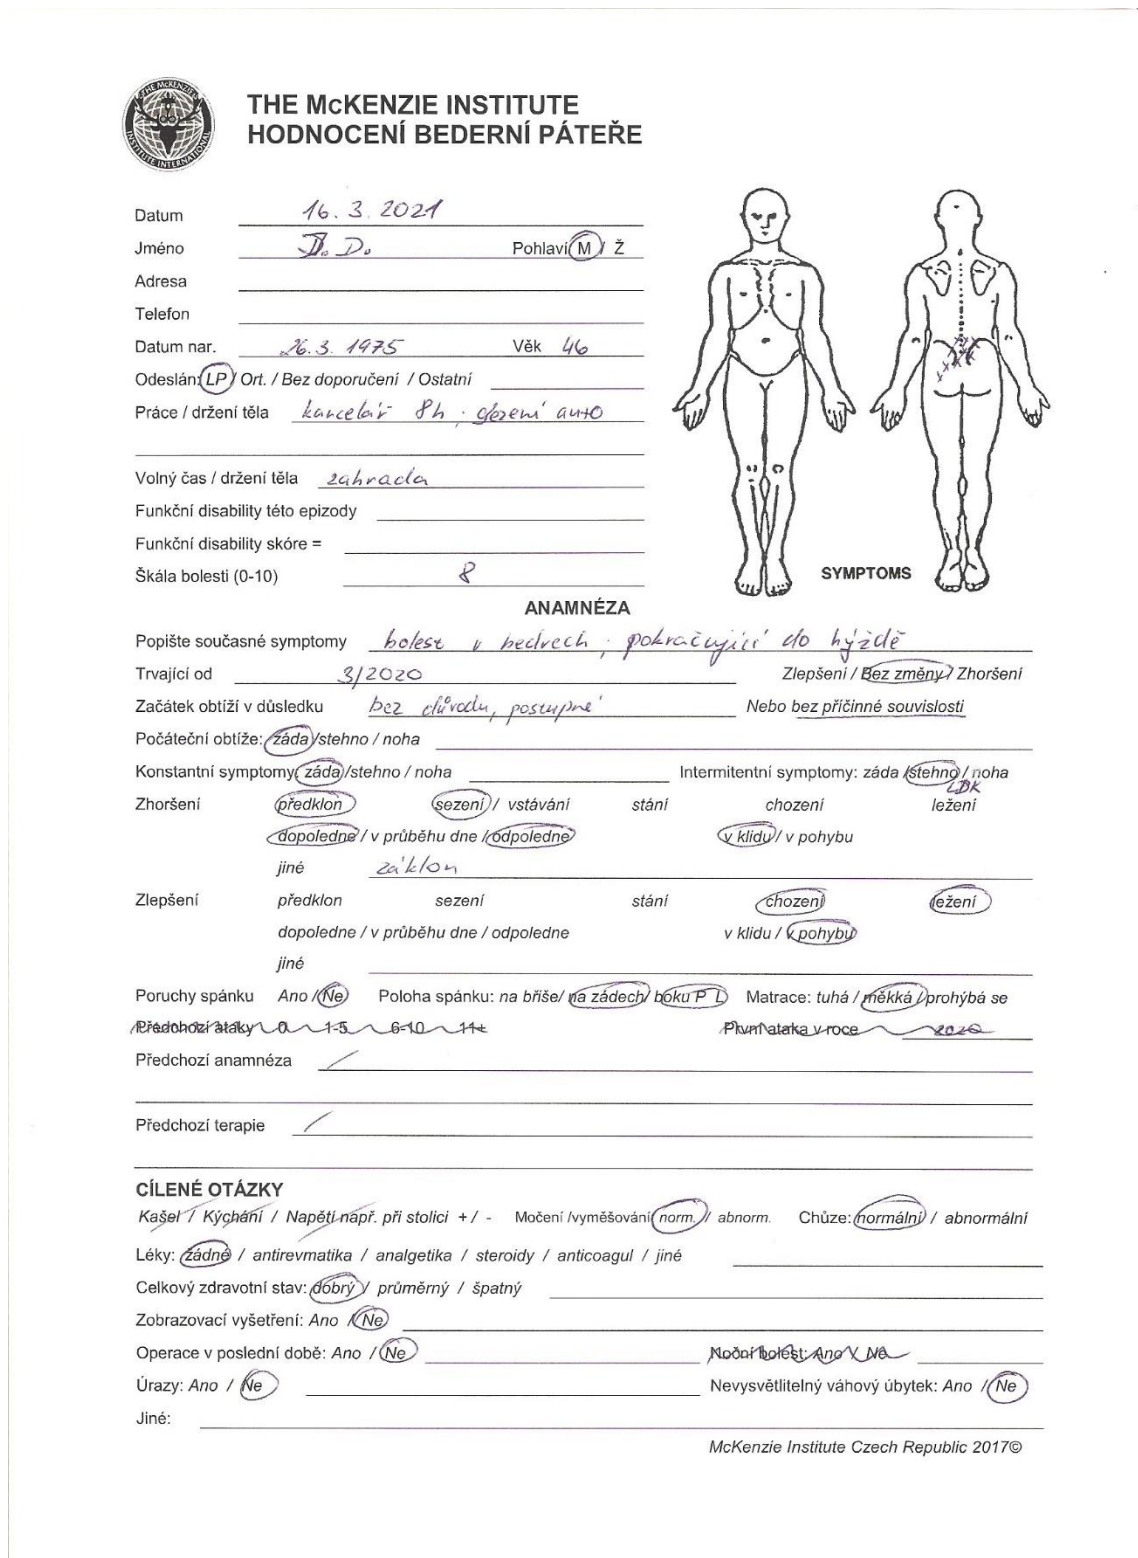 THE McKENZIE INSTITUTE
HODNOCENÍ BEDERNÍ PÁTEŘE
THE McKENZIE
INSTITUTE INTERNATIONAL
Datum 16. 3. 2021
Jméno D. D. Pohlaví M / Ž
Adresa
Telefon
Datum nar. 26. 3. 1975 Věk 46
Odeslán: LP / Ort. / Bez doporučení / Ostatní
Práce / držení těla kancelář 8h, auto
Volný čas / držení těla zahrada
Funkční disability této epizody
Funkční disability skóre =
Škála bolesti (0-10) 8
SYMPTOMS
ANAMNÉZA
Popište současné symptomy bolest v bedrech, pokračující do hýždě
Trvající od 3/2020 Zlepšení / Bez změny / Zhoršení
Začátek obtíží v důsledku bez důvodu, postupné Nebo bez příčinné souvislosti
Počáteční obtíže: záda/stehno / noha
Konstantní symptomy: záda/stehno / noha Intermitentní symptomy: záda /stehno / noha
LDK
Zhoršení předklon sezení / vstávání stání chození ležení
dopoledne / v průběhu dne / odpoledne v klidu / v pohybu
jiné záklon
Zlepšení předklon sezení stání chození ležení
dopoledne / v průběhu dne / odpoledne v klidu / v pohybu
jiné
Poruchy spánku Ano / Ne Poloha spánku: na břiše/ na zádech/ boku P L Matrace: tuhá / měkká / prohýbá se
Předchozí ataky 0 1-5 6-10 11+ První ataka v roce 2020
Předchozí anamnéza /
Předchozí terapie /
CÍLENÉ OTÁZKY
Kašel / Kýchání / Napětí např. při stolici + / - Močení /vyměšování: norm. / abnorm. Chůze: normální / abnormální
Léky: žádné / antirevmatika / analgetika / steroidy / anticoagul / jiné
Celkový zdravotní stav: dobrý / průměrný / špatný
Zobrazovací vyšetření: Ano / Ne
Operace v poslední době: Ano / Ne Noční bolest: Ano / Ne
Úrazy: Ano / Ne Nevysvětlitelný váhový úbytek: Ano / Ne
Jiné:
McKenzie Institute Czech Republic 2017©